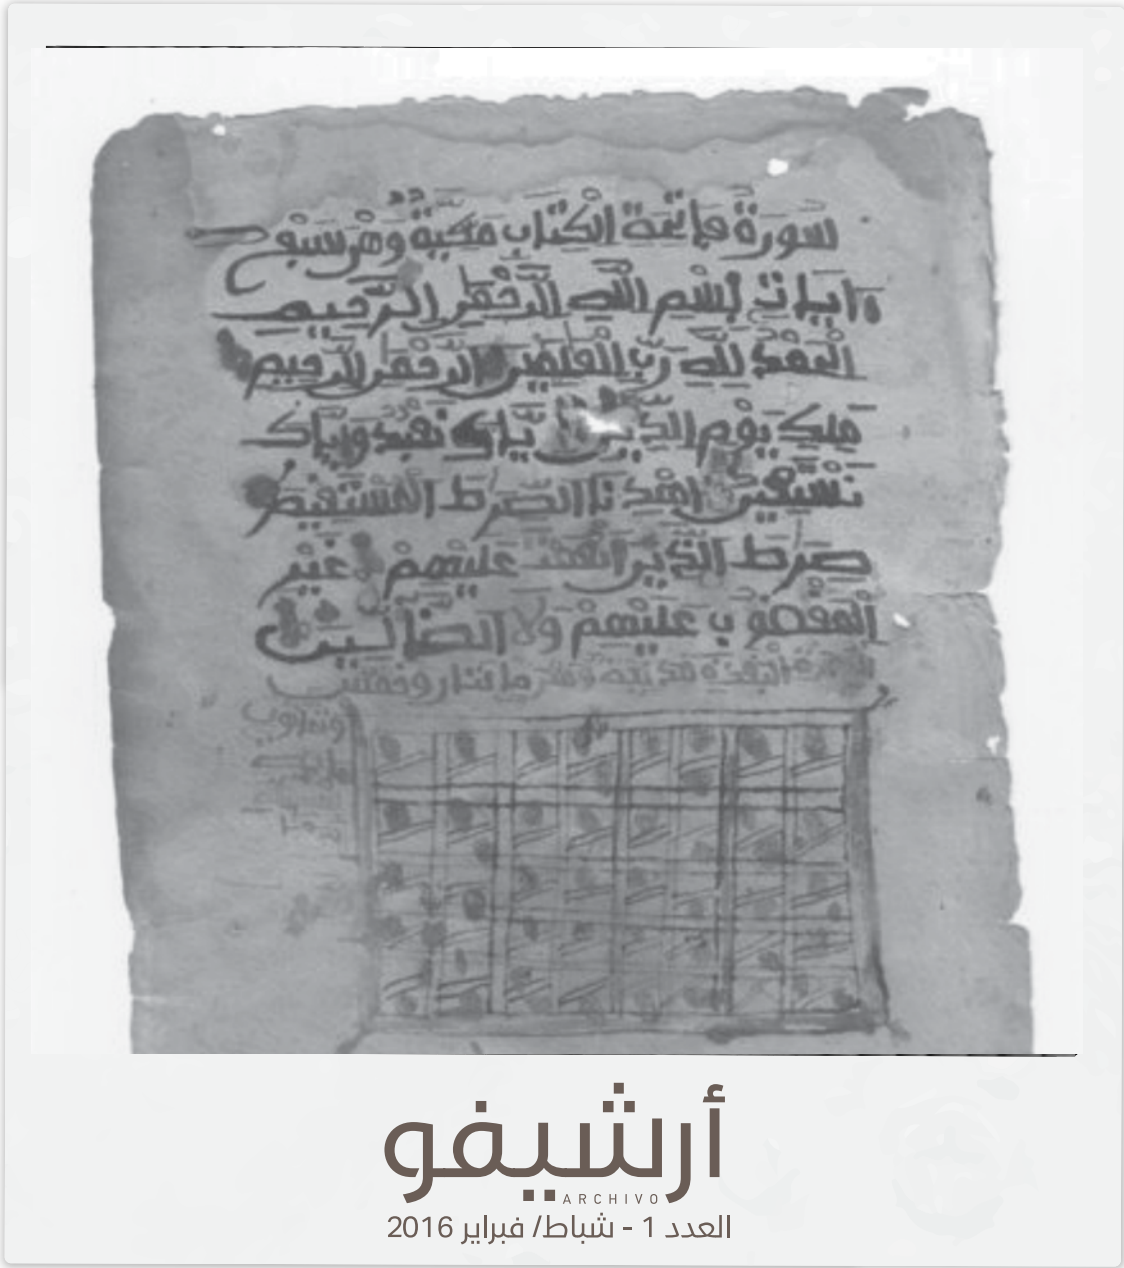 سورة فاتحة الكتاب مكية وهي سبع
ءايات بسم الله الرحمن الرحيم
الحمد لله رب العلمين الرحمن الرحيم
ملك يوم الدين إياك نعبد وإياك
نستعين اهدنا الصرط المستقيم
صرط الذين أنعمت عليهم غير
المغضوب عليهم ولا الضالين
البقرة مدنية وهي مايتان
أرشيفو
ARCHIVO
العدد 1 - شباط/ فبراير 2016